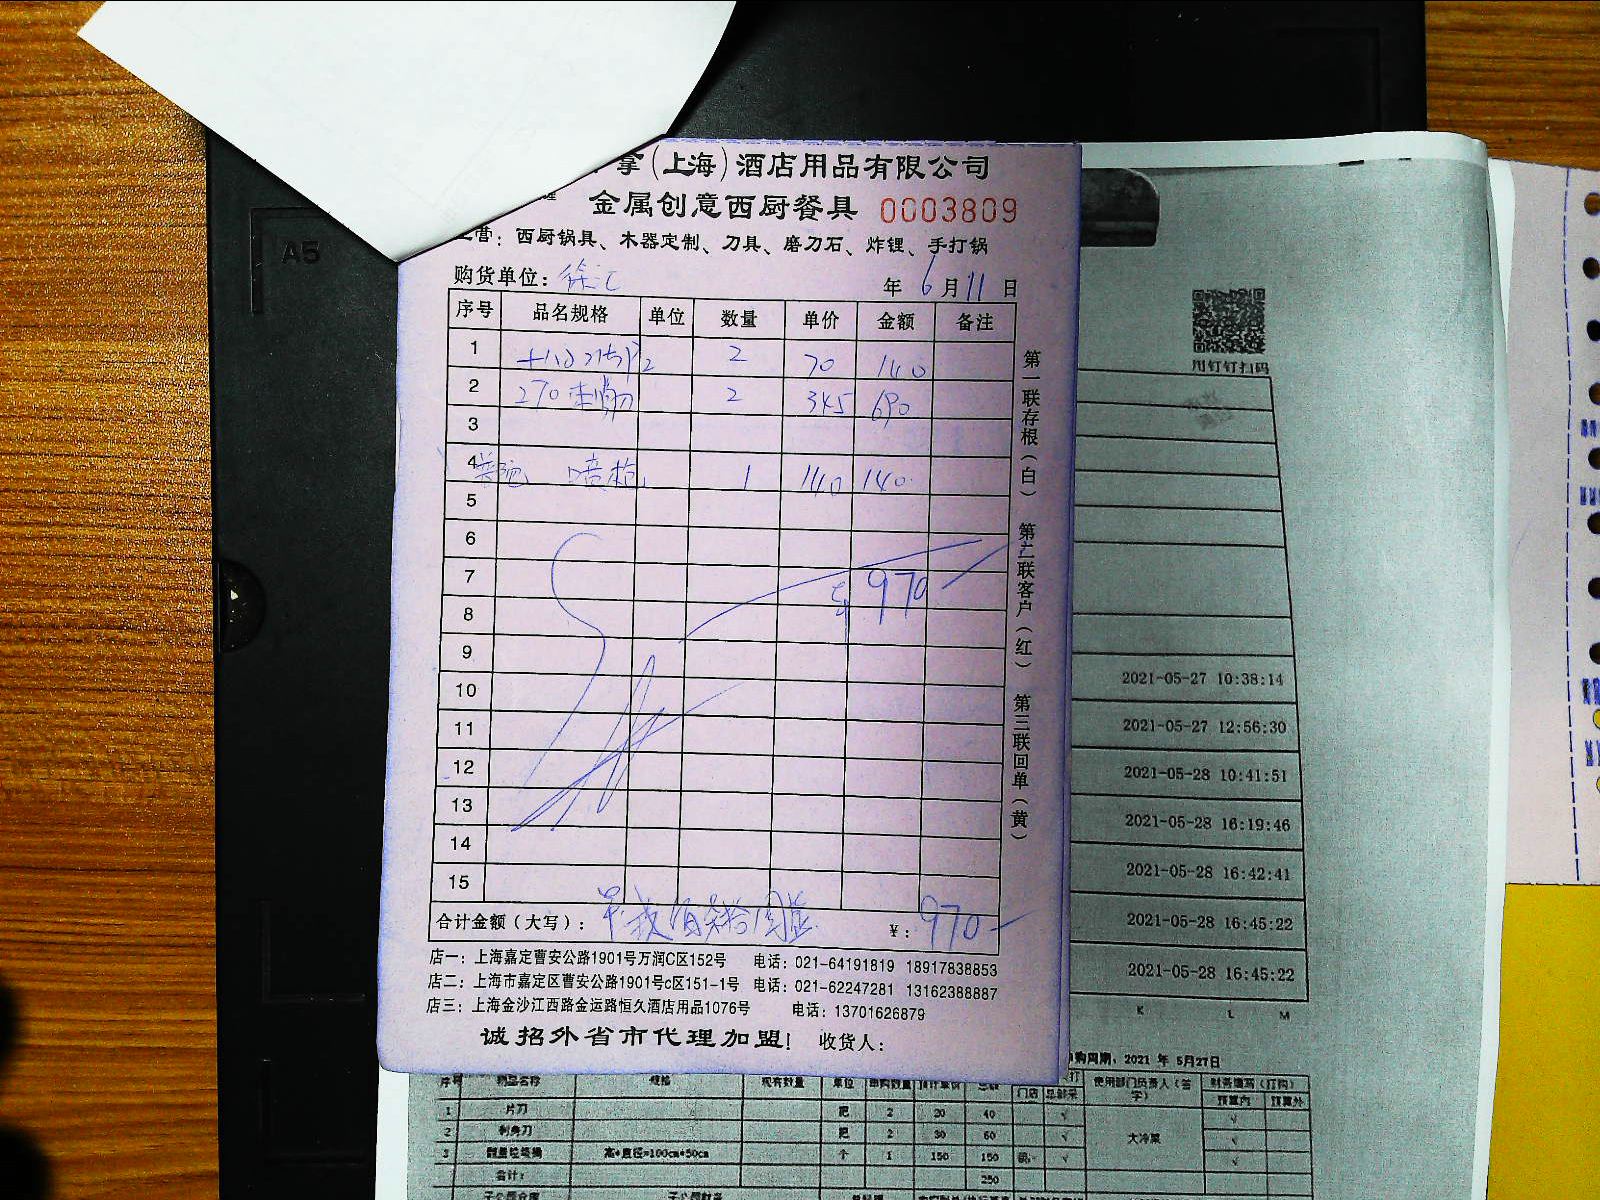 拿(上海)酒店用品有限公司
金属创意西厨餐具 0003809
营：西厨锅具、木器定制、刀具、磨刀石、炸锂、手打锅
购货单位：徐汇 年 6 月 11 日
序号 品名规格 单位 数量 单价 金额 备注
1 2 70 140
2 270 2 345 690
3
4 喷枪 1 140 140
5
6
7 970
8
9
10
11
12
13
14
15
合计金额（大写）： ¥：970
店一：上海嘉定曹安公路1901号万润C区152号 电话：021-64191819 18917838853
店二：上海市嘉定区曹安公路1901号c区151-1号 电话：021-62247281 13162388887
店三：上海金沙江西路金运路恒久酒店用品1076号 电话：13701626879
诚招外省市代理加盟！ 收货人：
第一联存根（白） 第二联客户（红） 第三联回单（黄）
A5
用钉钉扫码
2021-05-27 10:38:14
2021-05-27 12:56:30
2021-05-28 10:41:51
2021-05-28 16:19:46
2021-05-28 16:42:41
2021-05-28 16:45:22
2021-05-28 16:45:22
K L M
购周期，2021 年 5月27日
序号 物品名称 规格 现有数量 单位 申购数量 预计单价 总额 门店 总部采 使用部门负责人（签字） 财务填写（打勾）
预算内 预算外
1 片刀 把 2 20 40 √ 大冷菜 √
2 刺身刀 把 2 30 60 √ √
3 高*直径=100cm*50cm 个 1 150 150 √ √
合计： 250